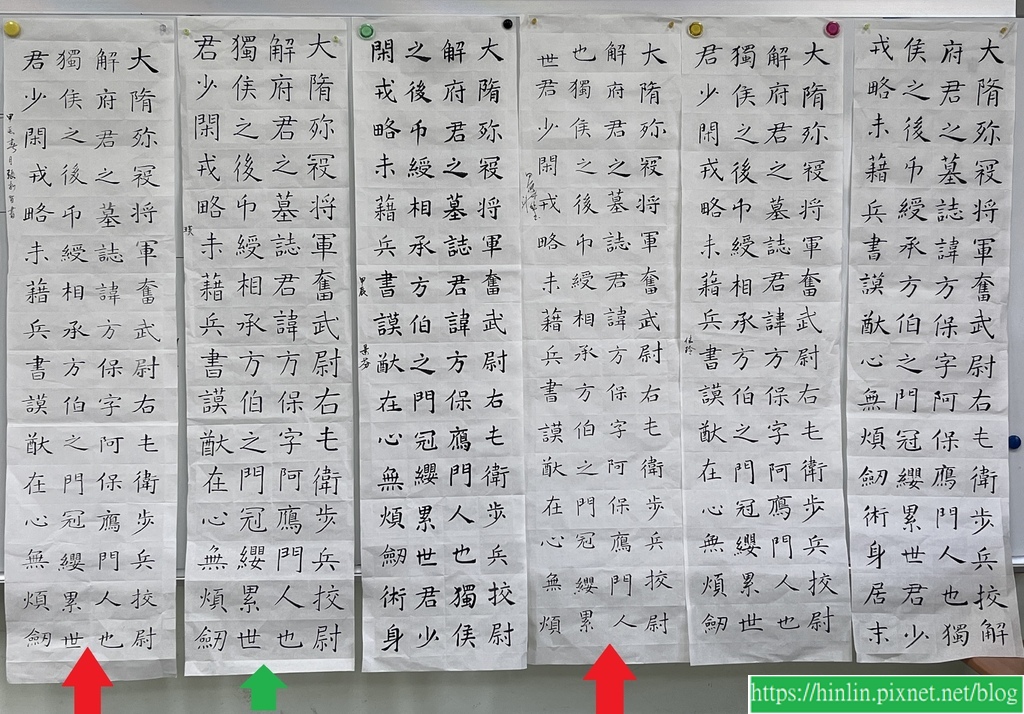 大隋弥寇将軍奮武尉右屯衛步兵挍解
府君之墓誌諱方保字阿保鷹門人也獨
侯之後印綬承方伯之門冠纓累世君少
戎略未藉兵書謨猷心無煩劒術身居末
大隋弥寇将軍奮武尉右屯衛步兵挍尉
解府君之墓誌君諱方保字阿鷹門人也
獨侯之後印綬相承方伯之門冠纓累世
君少閑戎略未藉兵書謨猷在心無煩劒
大隋弥寇将軍奮武尉右屯衛步兵挍尉
解府君之墓誌君諱方保字阿保鷹門人
也獨侯之後印綬相承方伯之門冠纓累
世君少閑戎略未藉兵書謨猷在心無煩
大隋弥寇将軍奮武尉右屯衛步兵挍尉
解府君之墓誌君諱方保鷹門人也獨侯
之後印綬相承方伯之門冠纓累世君少
閑戎略未藉兵書謨猷在心無煩劒術身
甲辰
大隋弥寇将軍奮武尉右屯衛步兵挍尉
解府君之墓誌君諱方保字阿鷹門人也
獨侯之後印綬相承方伯之門冠纓累世
君少閑戎略未藉兵書謨猷在心無煩劒
大隋弥寇将軍奮武尉右屯衛步兵挍尉
解府君之墓誌諱方保字阿保鷹門人也
獨侯之後印綬相承方伯之門冠纓累世
君少閑戎略未藉兵書謨猷在心無煩劒
甲辰春月張書
https://hinlin.pixnet.net/blog